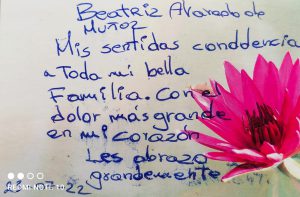 Beatriz Alvarado de
Muñoz
Mis sentidas condolencia
a Toda mi bella
Familia. Con el
dolor más grande
en mi corazón
Les abrazo
grandemente
22
REDMI NOTE 10